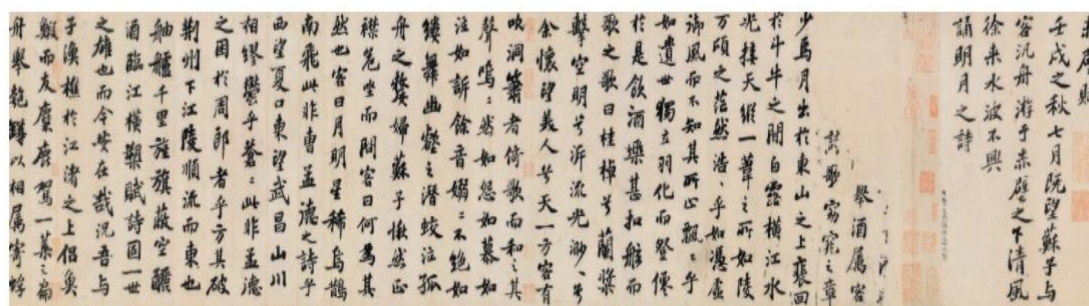 壬戌之秋七月既望蘇子與
客汎舟游于赤壁之下清風
徐来水波不興
誦明月之詩
舉酒屬客
歌窈窕之章
少焉月出於東山之上裵回
於斗牛之間白露橫江水
光接天縱一葦之所如陵
万頃之茫然浩〻乎如憑虛
御風而不知其所止飄〻乎
如遺世獨立羽化而登僊
於是飲酒樂甚扣舷而
歌之歌曰桂棹兮蘭槳
擊空明兮泝流光渺〻兮
余懷望美人兮天一方客有
吹洞簫者倚歌而和之其
聲嗚〻然如怨如慕如
泣如訴餘音嫋〻不絕如
縷舞幽壑之潛蛟泣孤
舟之嫠婦蘇子愀然正
襟危坐而問客曰何為其
然也客曰月明星稀烏鵲
南飛此非曹孟德之詩乎
西望夏口東望武昌山川
相繆鬱乎蒼〻此非孟德
之困於周郎者乎方其破
荊州下江陵順流而東也
舳艫千里旌旗蔽空釃
酒臨江橫槊賦詩固一世
之雄也而今安在哉況吾與
子漁樵於江渚之上侶魚
鰕而友麋鹿駕一葉之扁
舟舉匏樽以相屬寄蜉